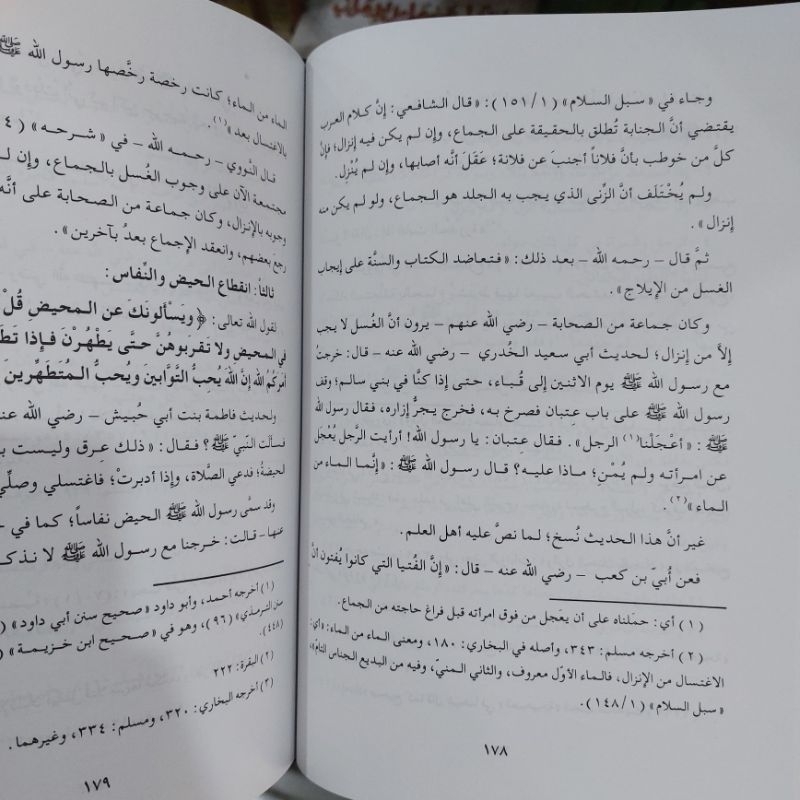 وجاء في «سبل السلام» (١/١٥١): «قال الشافعي: إنَّ كلام العرب
يقتضي أنَّ الجنابة تُطلق بالحقيقة على الجماع، وإن لم يكن فيه إنزال؛ فإنَّ
كلَّ من خوطب بأنَّ فلاناً أجنبَ عن فلانة؛ عَقَلَ أنَّه أصابها، وإن لم يُنْزِل.
ولم يُخْتَلَف أنَّ الزِّنى الذي يجب به الجلد هو الجماع، ولو لم يكن منه
إنزال».
ثمَّ قال – رحمه الله – بعد ذلك: «فتعاضد الكتاب والسنَّة على إيجاب
الغسل من الإيلاج».
وكان جماعة من الصحابة – رضي الله عنهم – يرون أنَّ الغُسل لا يجب
إِلاَّ من إنزال؛ لحديث أبي سعيد الخُدري – رضي الله عنه – قال: خرجتُ
مع رسول الله ﷺ يوم الاثنين إِلى قُباء، حتى إِذا كنَّا في بني سالم؛ وقف
رسول الله ﷺ على باب عِتبان فصرخ به، فخرج يجرُّ إزاره، فقال رسول الله
ﷺ: «أعْجَلْنا(١) الرجل». فقال عِتبان: يا رسول الله! أرأيت الرَّجل يُعْجَل
عن امرأته ولم يُمْنِ؛ ماذا عليه؟ قال رسول الله ﷺ: «إِنَّما الماء من
الماء»(٢).
غير أنَّ هذا الحديث نُسخ؛ لما نصَّ عليه أهل العلم.
فعن أُبيّ بن كعب – رضي الله عنه – قال: «إِنَّ الفُتيا التي كانوا يُفتون أنَّ
(١) أي: حملناه على أن يَعجَل من فوق امرأته قبل فراغ حاجته من الجماع.
(٢) أخرجه مسلم: ٣٤٣، وأصله في البخاري: ١٨٠، ومعنى الماء من الماء: «أي:
الاغتسال من الإنزال، فالماء الأوّل معروف، والثاني المنيّ، وفيه من البديع الجناس التامّ»،
«سبل السلام» (١/١٤٨).
١٧٨
الماء من الماء؛ كانت رخصة رخَّصها رسول الله ﷺ
بالاغتسال بعد»(١).
قال النَّووي – رحمه الله – في «شرحه» (٤
مجتمعة الآن على وجوب الغُسل بالجماع، وإن لـ
وجوبه بالإنزال، وكان جماعة من الصحابة على أنَّه
رجع بعضهم، وانعقد الإجماع بعدُ بآخرين».
ثالثاً: انقطاع الحيض والنِّفاس:
لقول الله تعالى: ﴿ويَسْألونَكَ عن المحيضِ قُلْ
في المحيض ولا تقربوهُنَّ حتَّى يَطْهُرْنَ فإذا تَطَـ
أمركُمُ الله إنَّ اللهَ يُحِبُّ التَّوَّابينَ ويُحبُّ المُتَطَهِّرينَ
ولحديث فاطمة بنت أبي حُبيش – رضي الله عنـ
فسألت النَّبيّ ﷺ؟ فقال: «ذلك عِرق وليست بـ
الحيضةُ؛ فدعي الصَّلاة، وإذا أدبرتْ؛ فاغتسلي وصلِّي
وقد سمَّى رسول الله ﷺ الحيض نفاساً؛ كما في
عنها– قالت: خرجنا مع رسول الله ﷺ لا نذكـ
(١) أخرجه أحمد، وأبو داود «صحيح سنن أبي داود» (
سنن الترمذي» (٩٦)، وهو في «صحيح ابن خزيمة» (
(٤٤٨).
(٢) البقرة: ٢٢٢
(٣) أخرجه البخاري: ٣٢٠، ومسلم: ٣٣٤، وغيرهما.
١٧٩